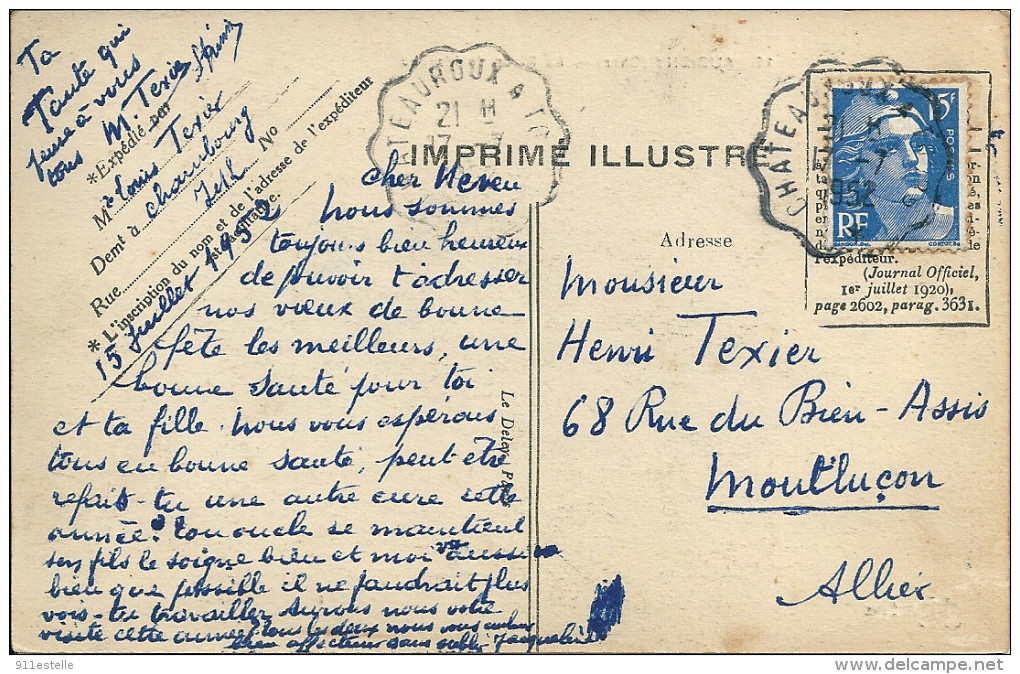 Ta
Tante qui
pense à vous
tous M. Texier
*Expédié par
M Louis Texier
Demt à Chambourg
Rue No
*L'inscription du nom et de l'adresse de l'expéditeur
est facultative.
15 Juillet 1952
IMPRIMÉ ILLUSTRÉ
CHATEAUROUX A TO
21 H
17 - 7
Cher Neveu
Nous sommes
toujours bien heureux
de pouvoir t'adresser
nos vœux de bonne
fête les meilleurs, une
bonne santé pour toi
et ta fille. Nous vous espérons
tous en bonne santé, peut être
refais-tu une autre cure cette
année. ton oncle se maintient
son fils le soigne bien et moi aussi
bien que possible il ne faudrait plus
vois-tu travailler, Aurons nous votre
visite cette année, tous les deux nous vous
bien affectueux sans oublier Jacqueline
Le Deley, Paris
CHATEAUROUX A
1952
15F
POSTES
RF
l'expéditeur.
(Journal Officiel,
1er juillet 1920),
page 2602, parag. 3631.
Adresse
Monsieur
Henri Texier
68 Rue du Bien-Assis
Montluçon
Allier
911estelle
www.delcampe.net